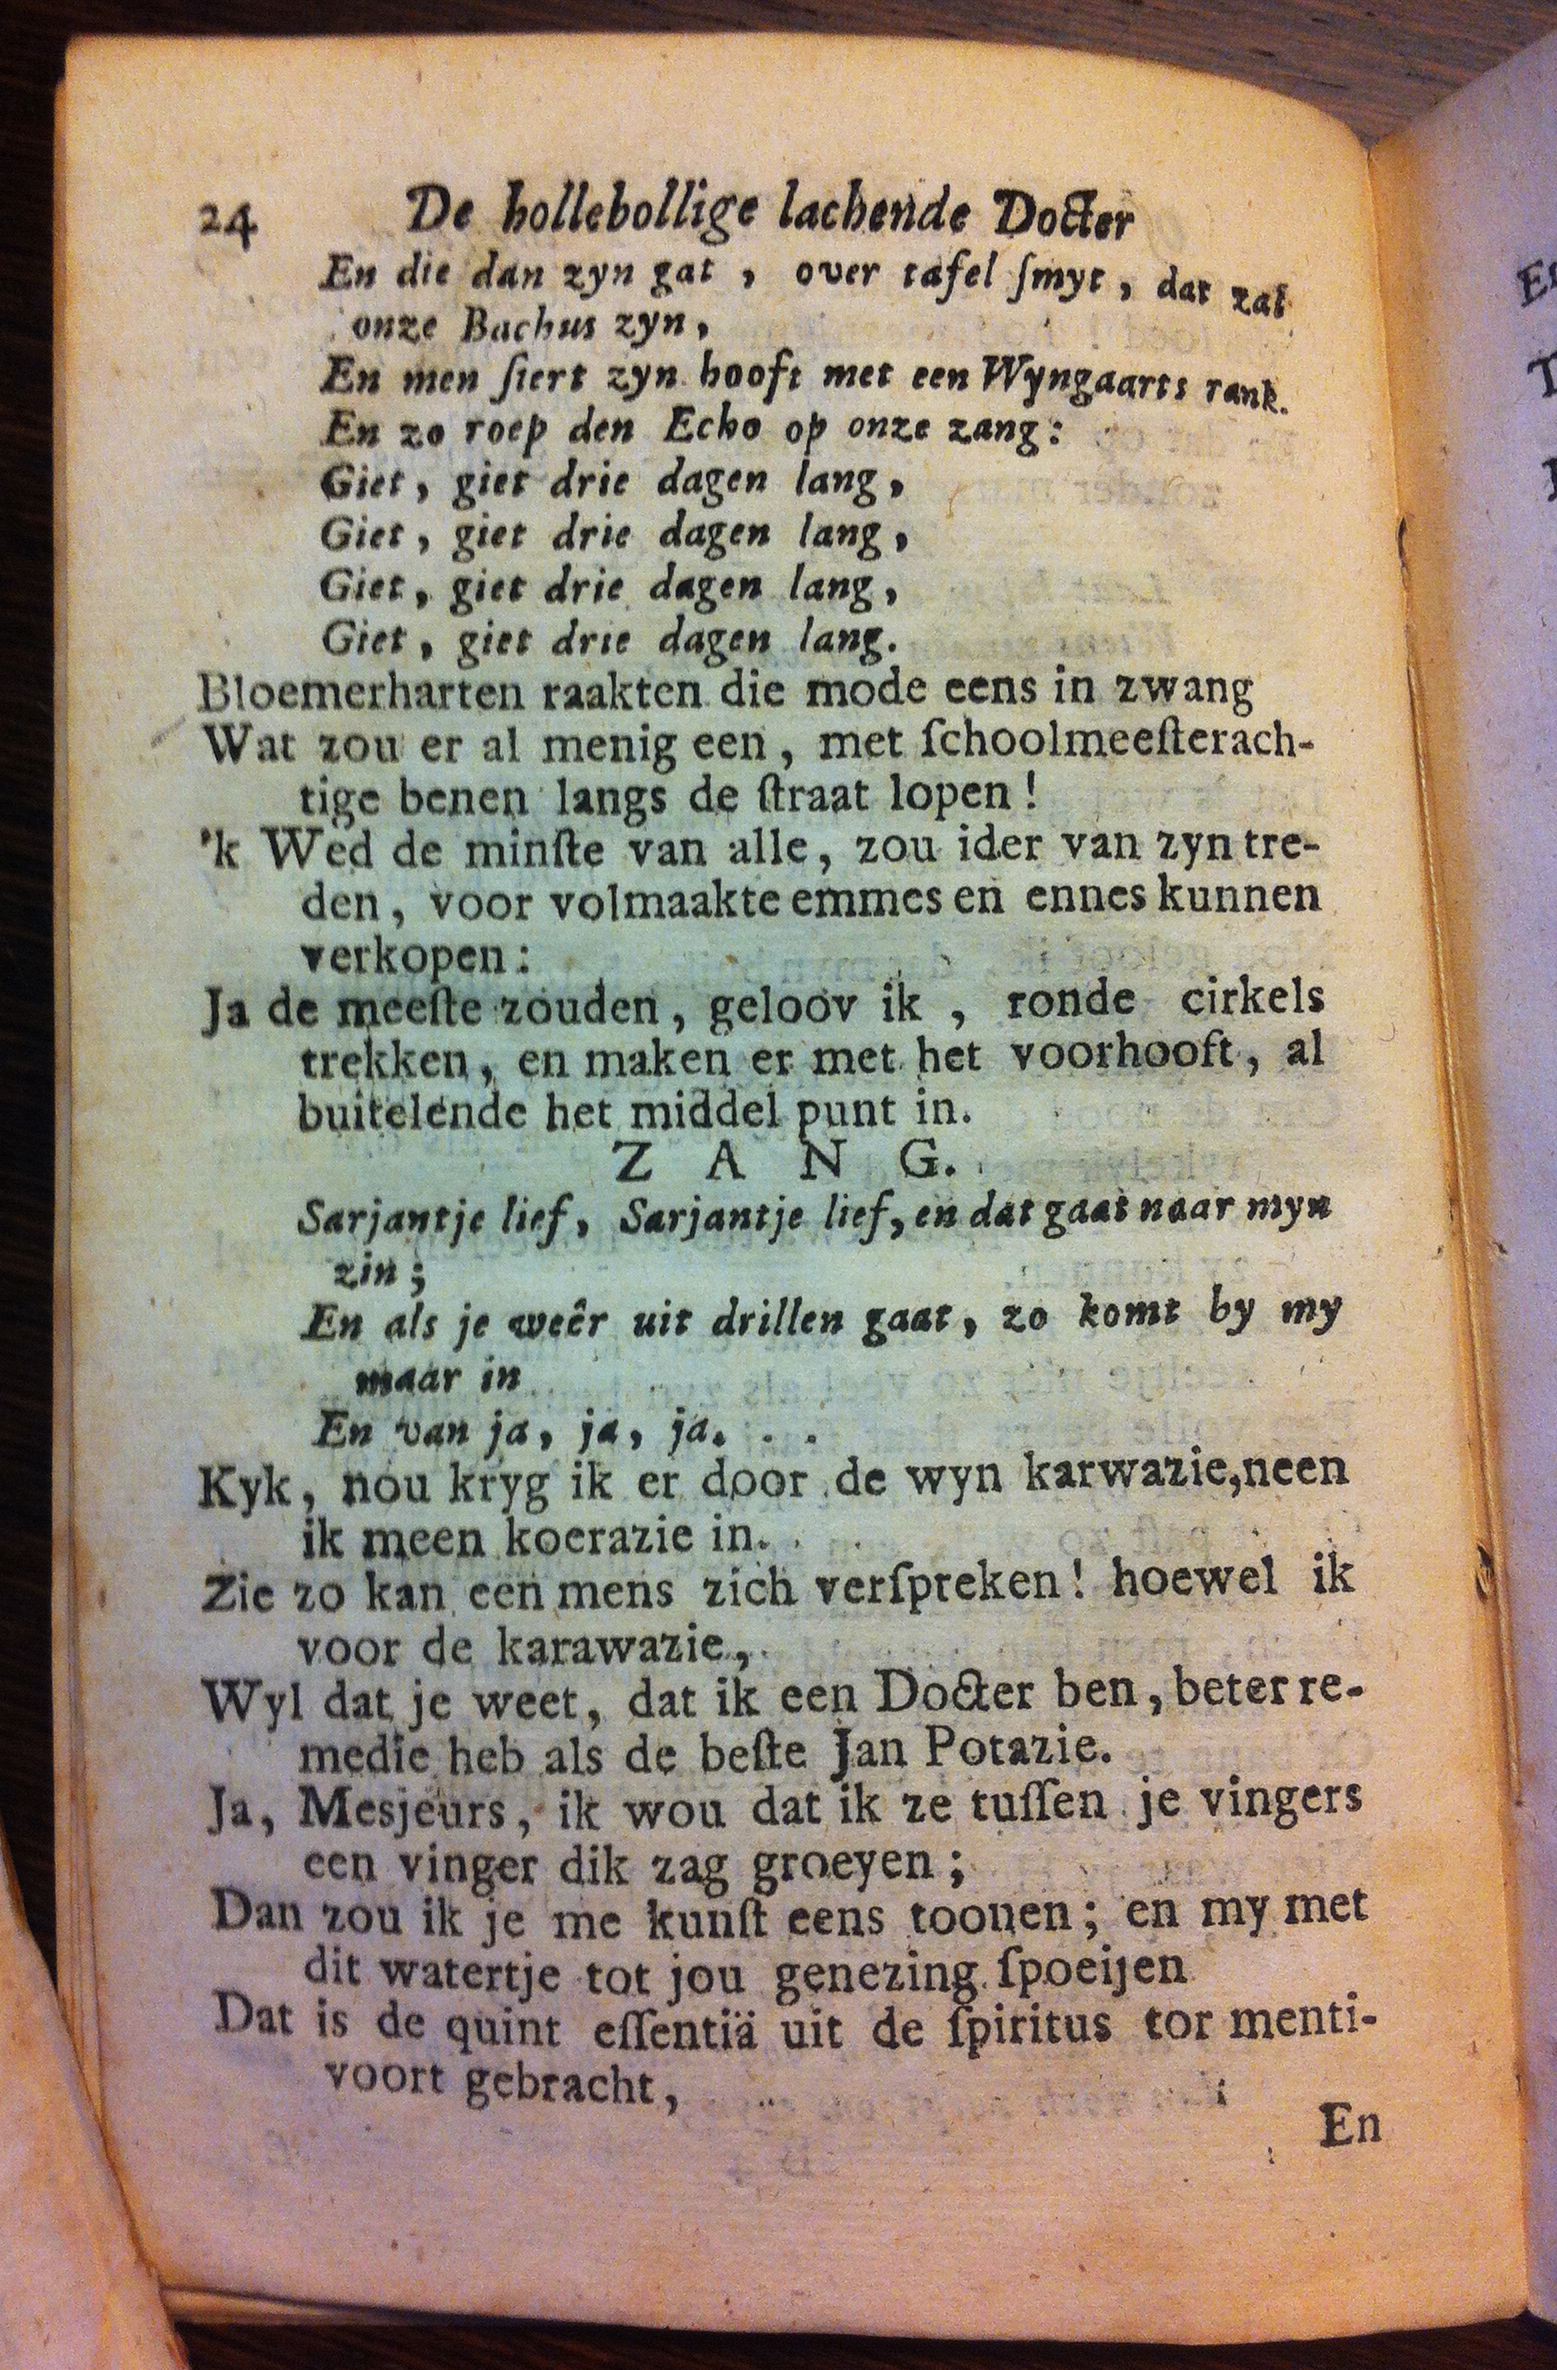 24 De hollebollige lachende Docter
En die dan zyn gat , over tafel ſmyt , dat zal
onze Bachus zyn,
En men ſiert zyn hooft met een Wyngaarts rank.
En zo roep den Echo op onze zang:
Giet, giet drie dagen lang,
Giet, giet drie dagen lang,
Giet, giet drie dagen lang,
Giet, giet drie dagen lang.
Bloemerharten raakten die mode eens in zwang
Wat zou er al menig een, met ſchoolmeeſterach-
tige benen langs de ſtraat lopen!
'k Wed de minſte van alle, zou ider van zyn tre-
den, voor volmaakte emmes en ennes kunnen
verkopen:
Ja de meeſte zouden, geloov ik , ronde cirkels
trekken, en maken er met het voorhooft, al
buitelende het middel punt in.
Z A N G.
Sarjantje lief, Sarjantje lief, en dat gaat naar myn
zin;
En als je weêr uit drillen gaat, zo komt by my
maar in
En van ja, ja, ja. . .
Kyk, nou kryg ik er door de wyn karwazie,neen
ik meen koerazie in.
Zie zo kan een mens zich verſpreken! hoewel ik
voor de karawazie,
Wyl dat je weet, dat ik een Docter ben, beter re-
medie heb als de beſte Jan Potazie.
Ja, Mesjeurs, ik wou dat ik ze tuſſen je vingers
een vinger dik zag groeyen;
Dan zou ik je me kunſt eens toonen; en my met
dit watertje tot jou genezing ſpoeijen
Dat is de quint eſſentiä uit de ſpiritus tor menti-
voort gebracht,
En